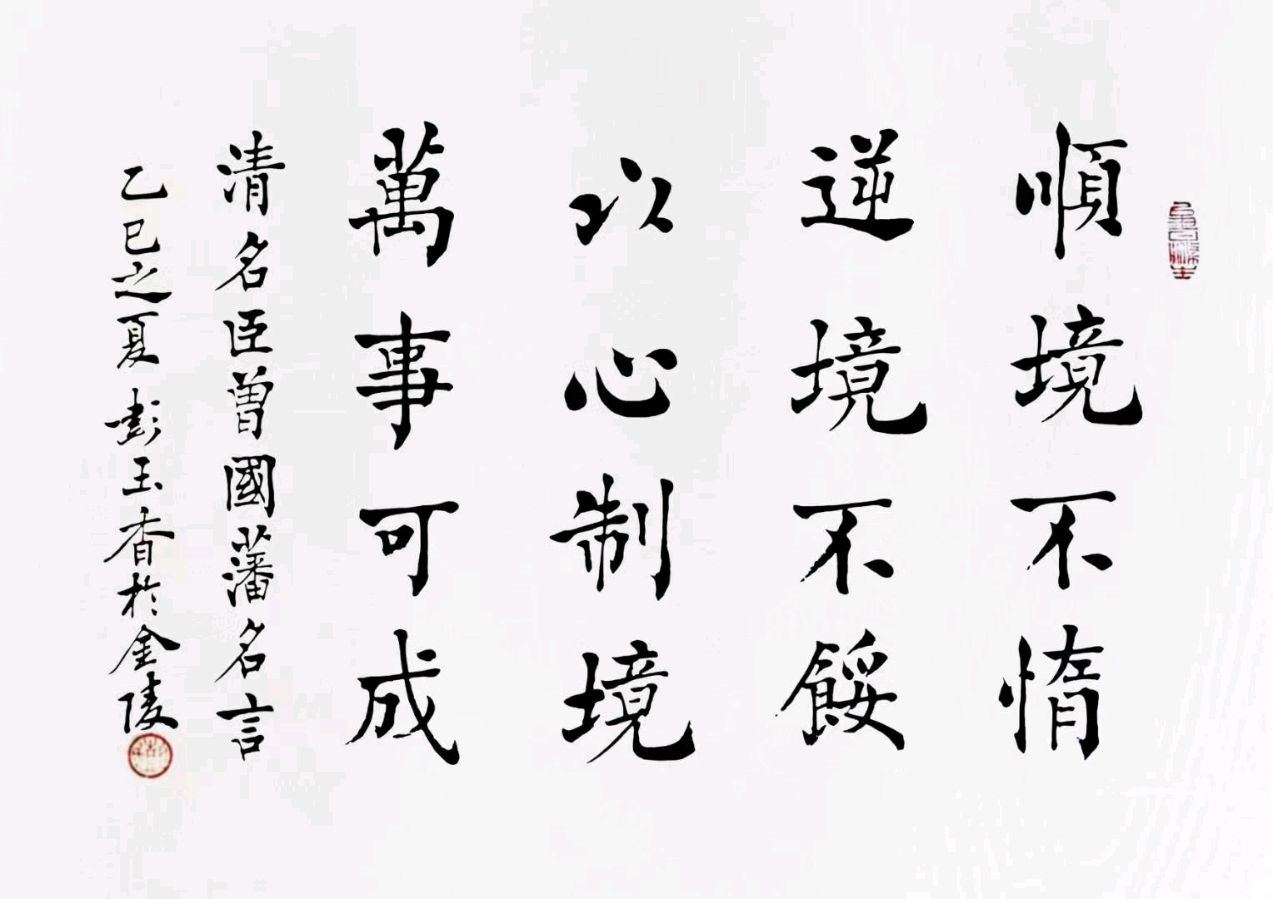 順境不惰
逆境不餒
以心制境
萬事可成
清名臣曾國藩名言
乙巳之夏彭玉香於金陵